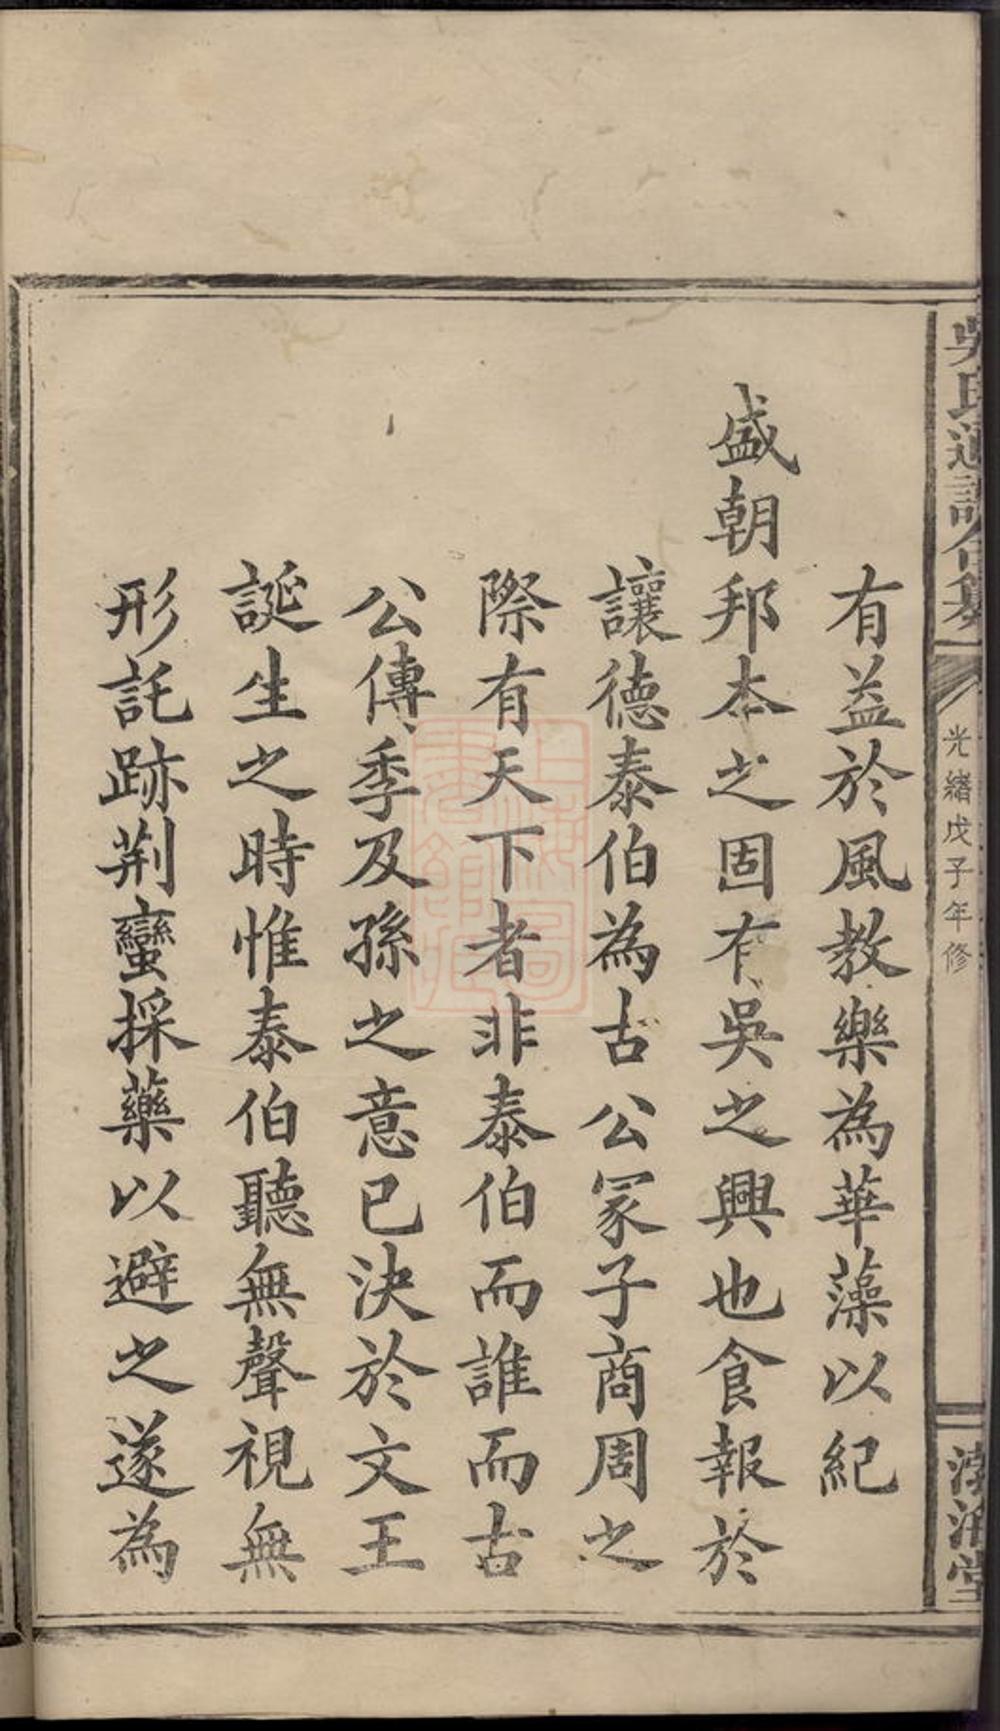 吳氏通譜合纂
光緒戊子年修
渤海堂
有益於風教樂為華藻以紀
盛朝邦本之固有吳之興也食報於
讓德泰伯為古公冡子商周之
際有天下者非泰伯而誰而古
公傳季及孫之意已決於文王
誕生之時惟泰伯聽無聲視無
形託跡荆蠻採藥以避之遂為